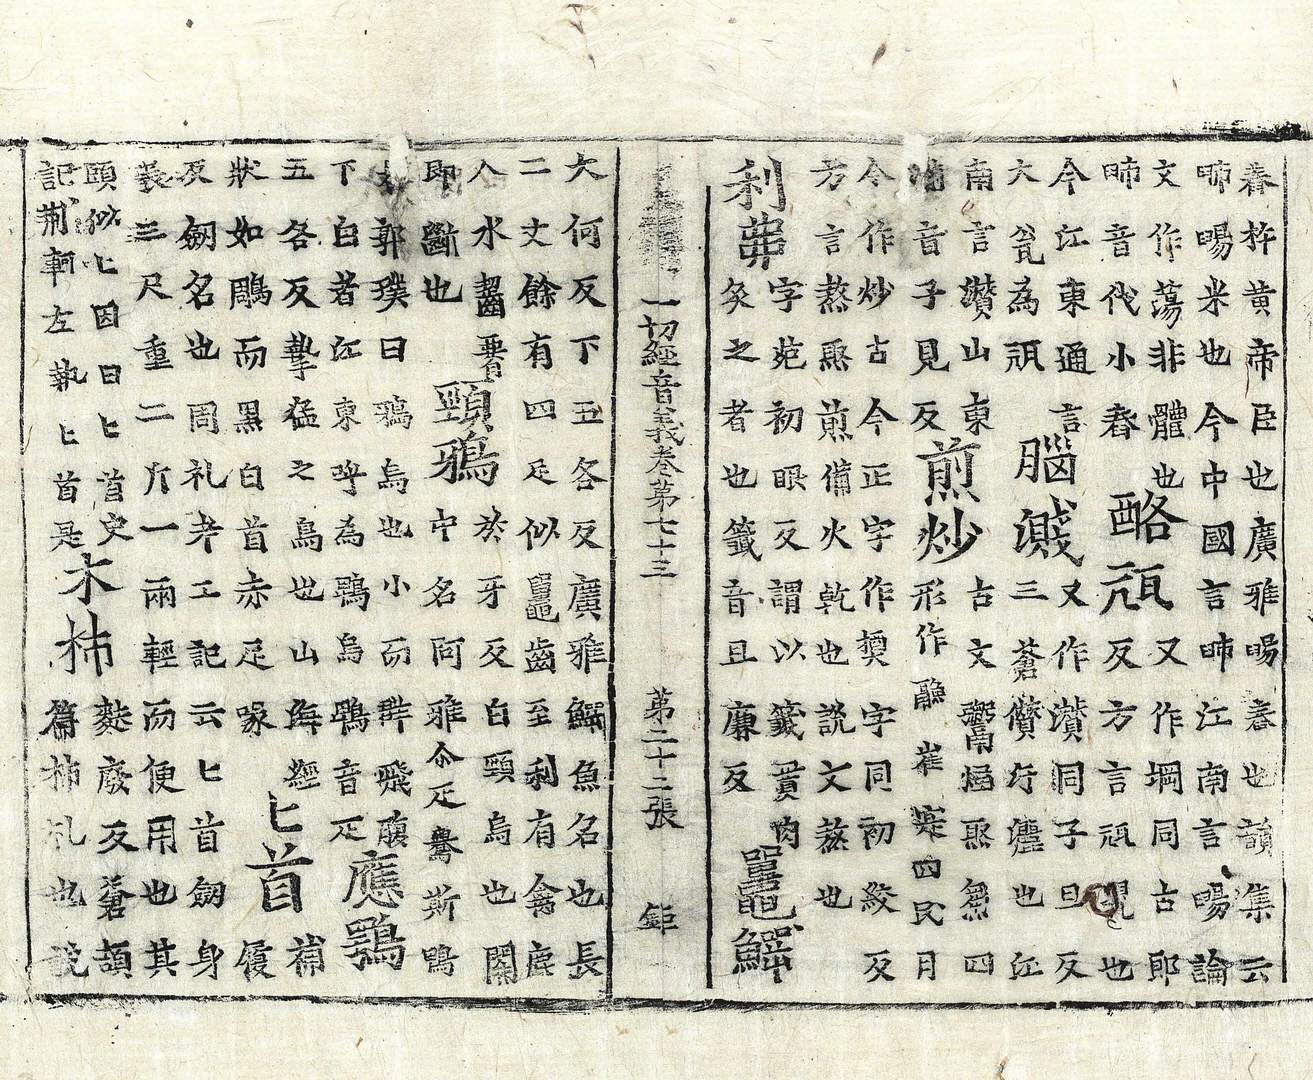 舂杵黃帝臣也廣雅暘舂也韻集云
䏽暘米也今中國言䏽江南言暘論
文作蕩非體也䏽音代小舂
酪瓨又作堈同古郎反方言瓨甖也
今江東通言大瓮為瓨
腦濺又作灒同子旦反三蒼儹汙灑也江
南言灒山東湔音子見反
煎炒古文鬻煼焣𤋽四形作䶒崔寔四民月
今作炒古今正字作䊿字同初絞反
方言熬焣煎備火乾也說文熬也
利弗字苑初眼反謂以籤貫肉炙之者也籤音且廉反
鼉鱓
一切經音義卷第七十三 第二十二張 鉅
大何反下五各反廣雅鱷魚名也長
二丈餘有四足似鼉齒至利有禽鹿
入水齧要即斷也
頸鴉於牙反白頸烏也關中名阿雅尒疋鸒斯鴨
郭璞曰鴉烏也小而群飛腹下白者江東呼為鵯烏鵯音疋
鷹鶚五各反摯猛之鳥也山海經狀如鵰而黑白首赤足喙
匕首補履
反劒名也周礼考工記云匕首劒身
義三尺重二斤一兩輕而便用也其
頭似匕因曰匕首史記荊軻左執匕首是
木柿麩廢反蒼頡篇柿札也說